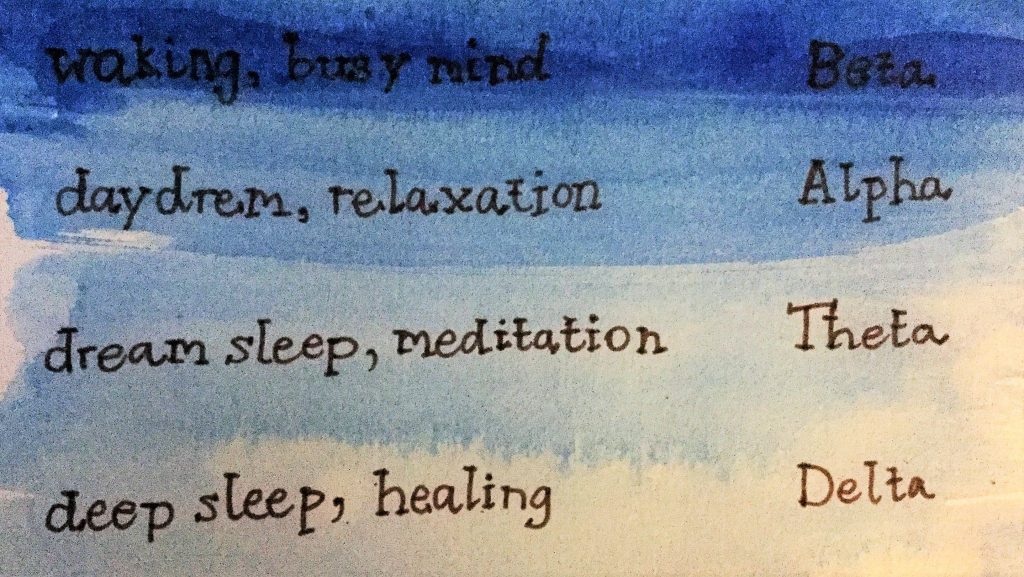 waking, busy mind Beta
daydrem, relaxation Alpha
dream sleep, meditation Theta
deep sleep, healing Delta